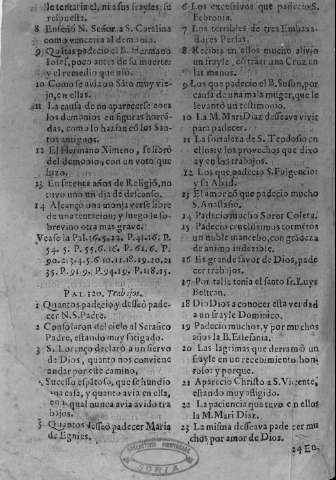 le tentaria el, ni a sus frayles; su
respuesta.
8 Enseñò N. Señor a S. Catalina
como venceria al demonio.
9 Quãtas padecio el B. Hermano
Ioseꝑ, poco antes de su muerte:
y el remedio que usò.
10 Como se avia un Sãto muy vie-
jo, en ellas.
11 La causa de no aparecerse aora
los demonios en figuras horrē-
das, como lo hazian cõ los San-
tos antiguos.
12 El Hermano Ximeno, se librò
del demonio, con un voto que
hizo.
13 En setenta años de Religiõ, no
tuvo uno un dia de descanso.
14 Alcançò una monja verse libre
de una tentacion; y luego le so-
brevino otra mas grave.
Vease la Pal. 16. 5. 22. P. 41. 16. P.
54. 5. P. 55. 6. 16. P. 61. 6. P.
90. 2. 3. 4. 5. 6. 10. 11. 18. 19. 20. 21
35. P. 91. 9. P. 94. 19. P. 118. 15.
PAL. 120. Trabajos.
1 Quantos padeciò y desseò pade-
cer N. S. Padre.
2 Consolaron del cielo al Serafico
Padre, estando muy fatigado.
3 S. Lorenço declarò a un siervo
de Dios, quanto nos conviene
andar por este camino.
4 Sucesso espãtoso, que se hundio
una casa, y quanto avia en ella,
en la qual nunca avia avido tra
bajos.
5 Quantos desseò padecer Maria
de Egnies.
6 Los excessivos que padecio S.
Febronia.
7 Los terribles de tres Embaxa-
dores Persas.
8 Recibia en ellos mucho alivio
un frayle, cõ traer una Cruz en
las manos.
9 Los que padeciò el B. Suson, por
causa de una mala muger, que le
levantò un testimonio.
10 La M. Mari Diaz deseava vivir
para padecer.
11 La fortaleza de S. Teodosio en
ellos: y los provechos que dixo
ay en los trabajos.
12 Los que padeciò S. Fulgencio:
y su Abad.
13 El amor cõ que padeciò mucho
S. Anastasio.
14 Padeciò mucho Soror Coleta.
15 Padecio crueliſsimos tormẽtos
un noble mancebo, con grãdeza
de animo indezible.
16 Es grande favor de Dios, pade
cer trabajos.
17 Por tal is tenia el santo fr. Luys
Beltran.
18 Diò Dios a conocer esta verdad
a un frayle Dominico.
19 Padeciò muchos, y por muchos
años la B. Estefania.
20 Las lagrimas que derramò un
frayle en un recebimiento hon-
roso: y porque.
21 Apareciò Christo a S. Vicente,
estando muy afligido.
22 La paciencia que tuvo en ellos
la M. Mari Diaz.
23 La misma desseava padecer mu
chos por amor de Dios.
24 En.
SORIA